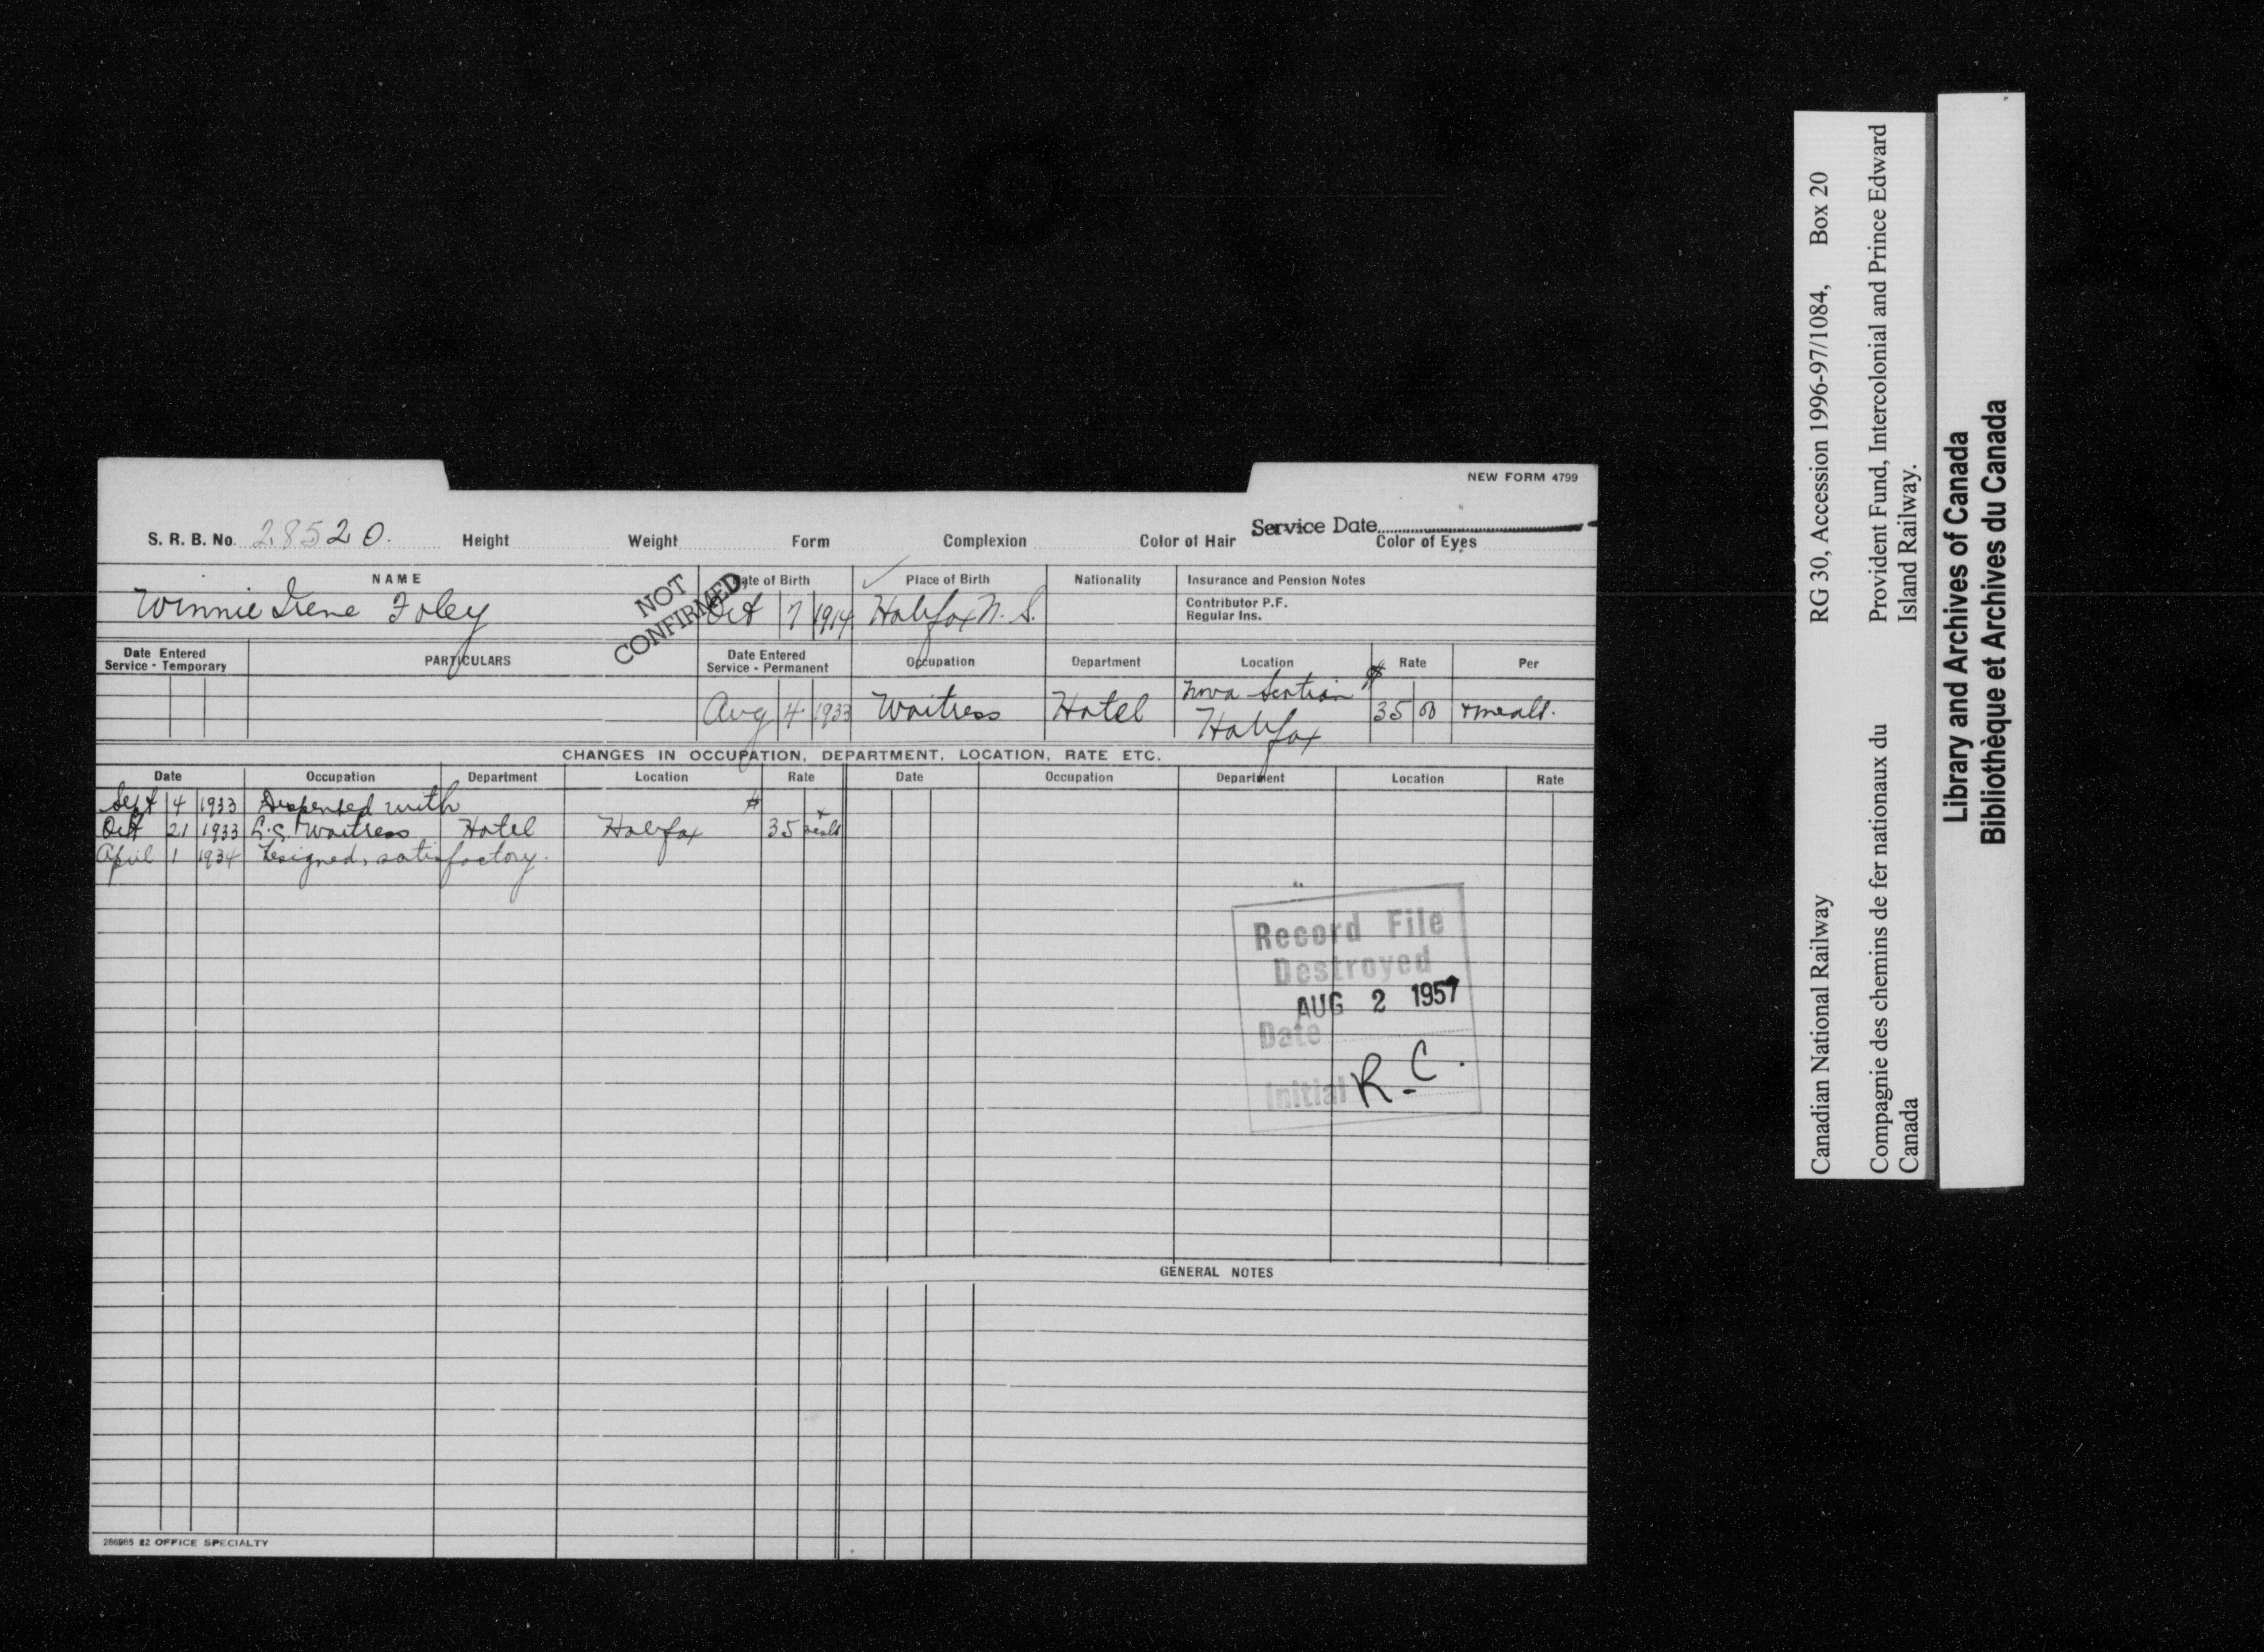 NEW FORM 4799
Service Date
S. R. B. No. 28520. Height Weight Form Complexion Color of Hair Color of Eyes
NAME Date of Birth Place of Birth Nationality Insurance and Pension Notes
Winnie Irene Foley NOT CONFIRMED Oct 7 1914 Halifax N.S. Contributor P.F.
Regular Ins.
Date Entered Service - Temporary PARTICULARS Date Entered Service - Permanent Occupation Department Location Rate Per
Aug 4 1933 Waitress Hotel Nova Scotian Halifax $ 35 00 + meals.
CHANGES IN OCCUPATION, DEPARTMENT, LOCATION, RATE ETC.
Date Occupation Department Location Rate Date Occupation Department Location Rate
Sept 4 1933 Dispensed with
Oct 21 1933 Waitress Hotel Halifax $ 35 + meals
April 1 1934 Resigned, satisfactory.
Record File
Destroyed
AUG 2 1957
Date
Initial R.C.
GENERAL NOTES
286985 22 OFFICE SPECIALTY
Canadian National Railway RG 30, Accession 1996-97/1084, Box 20
Compagnie des chemins de fer nationaux du Provident Fund, Intercolonial and Prince Edward
Canada Island Railway.
Library and Archives of Canada
Bibliothèque et Archives du Canada